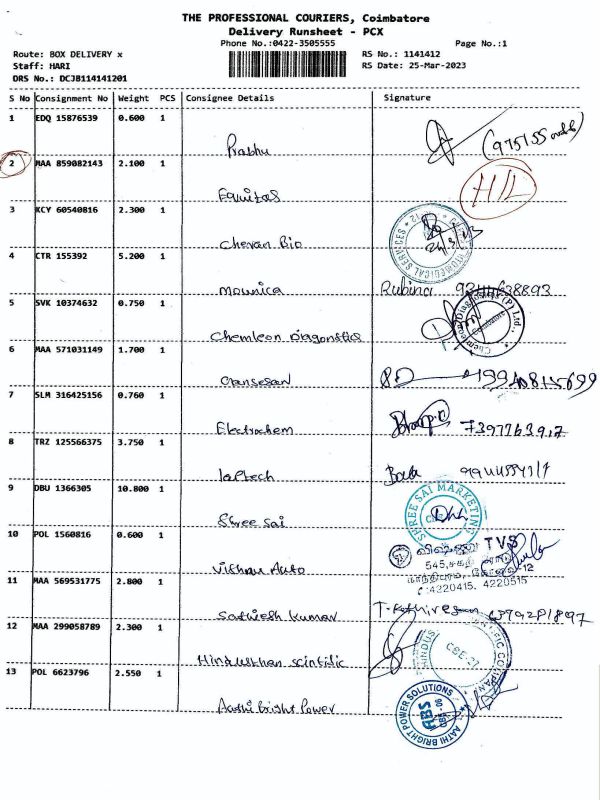 THE PROFESSIONAL COURIERS, Coimbatore
Delivery Runsheet - PCX
Phone No.:0422-3505555 Page No.:1
Route: BOX DELIVERY x RS No.: 1141412
Staff: HARI RS Date: 25-Mar-2023
DRS No.: DCJB114141201
S No Consignment No Weight PCS Consignee Details Signature
1 EDQ 15876539 0.600 1
Prabhu
2 MAA 859082143 2.100 1 H/L
Equitas
3 KCY 60540816 2.300 1
Chevan Bio
4 CTR 155392 5.200 1
Mounica Rubina
5 SVK 10374632 0.750 1
Chemleon Diagonstics
6 MAA 571031149 1.700 1
Ganesan
7 SLM 316425156 0.760 1
Electrochem 7397763917
8 TRZ 125566375 3.750 1
laptech Bala
9 DBU 1366305 10.800 1 SHREE SAI MARKETING
Shree Sai
10 POL 1560816 0.600 1 TVS
Vishnu Auto
:4220415. 4220515
11 MAA 569531775 2.800 1
Sathiesh Kumar T. Kathiresan
12 MAA 299058789 2.300 1
Hindusthan Scintific
13 POL 6623796 2.550 1
Aathi Bright Power AATHI BRIGHT POWER SOLUTIONS
ABS